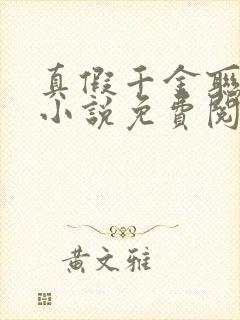 真假千金聯
小說免費閱
黃文雅